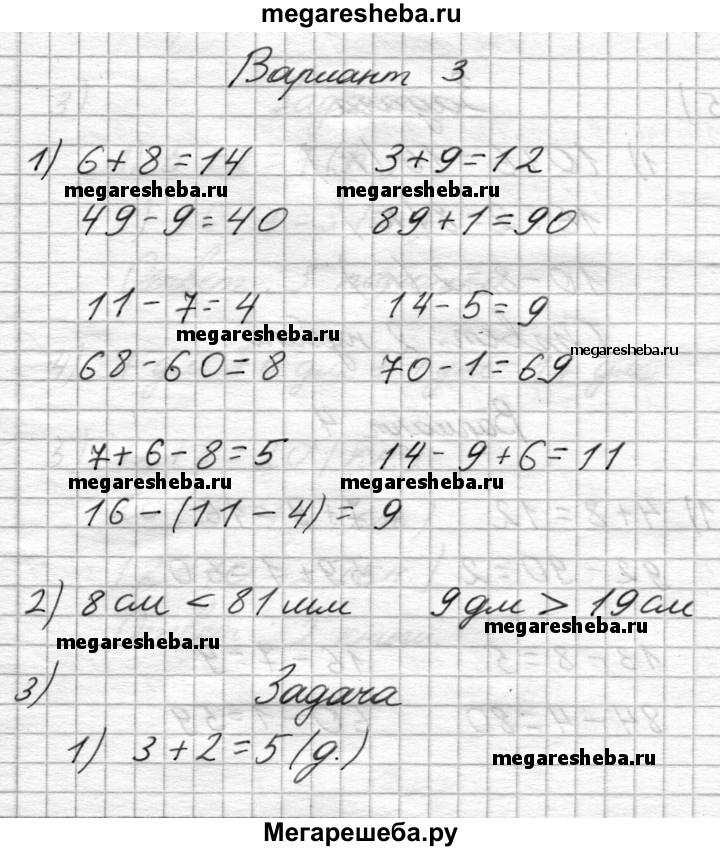 megaresheba.ru
Вариант 3
1) 6+8=14 3+9=12
megaresheba.ru megaresheba.ru
49-9=40 89+1=90
11-7=4 14-5=9
megaresheba.ru megaresheba.ru
68-60=8 70-1=69
7+6-8=5 14-9+6=11
megaresheba.ru megaresheba.ru
16-(11-4)=9
2) 8 см < 81 мм 9 дм > 19 см
megaresheba.ru megaresheba.ru
3) Задача
1) 3+2=5 (д.)
megaresheba.ru
Мегарешеба.ру